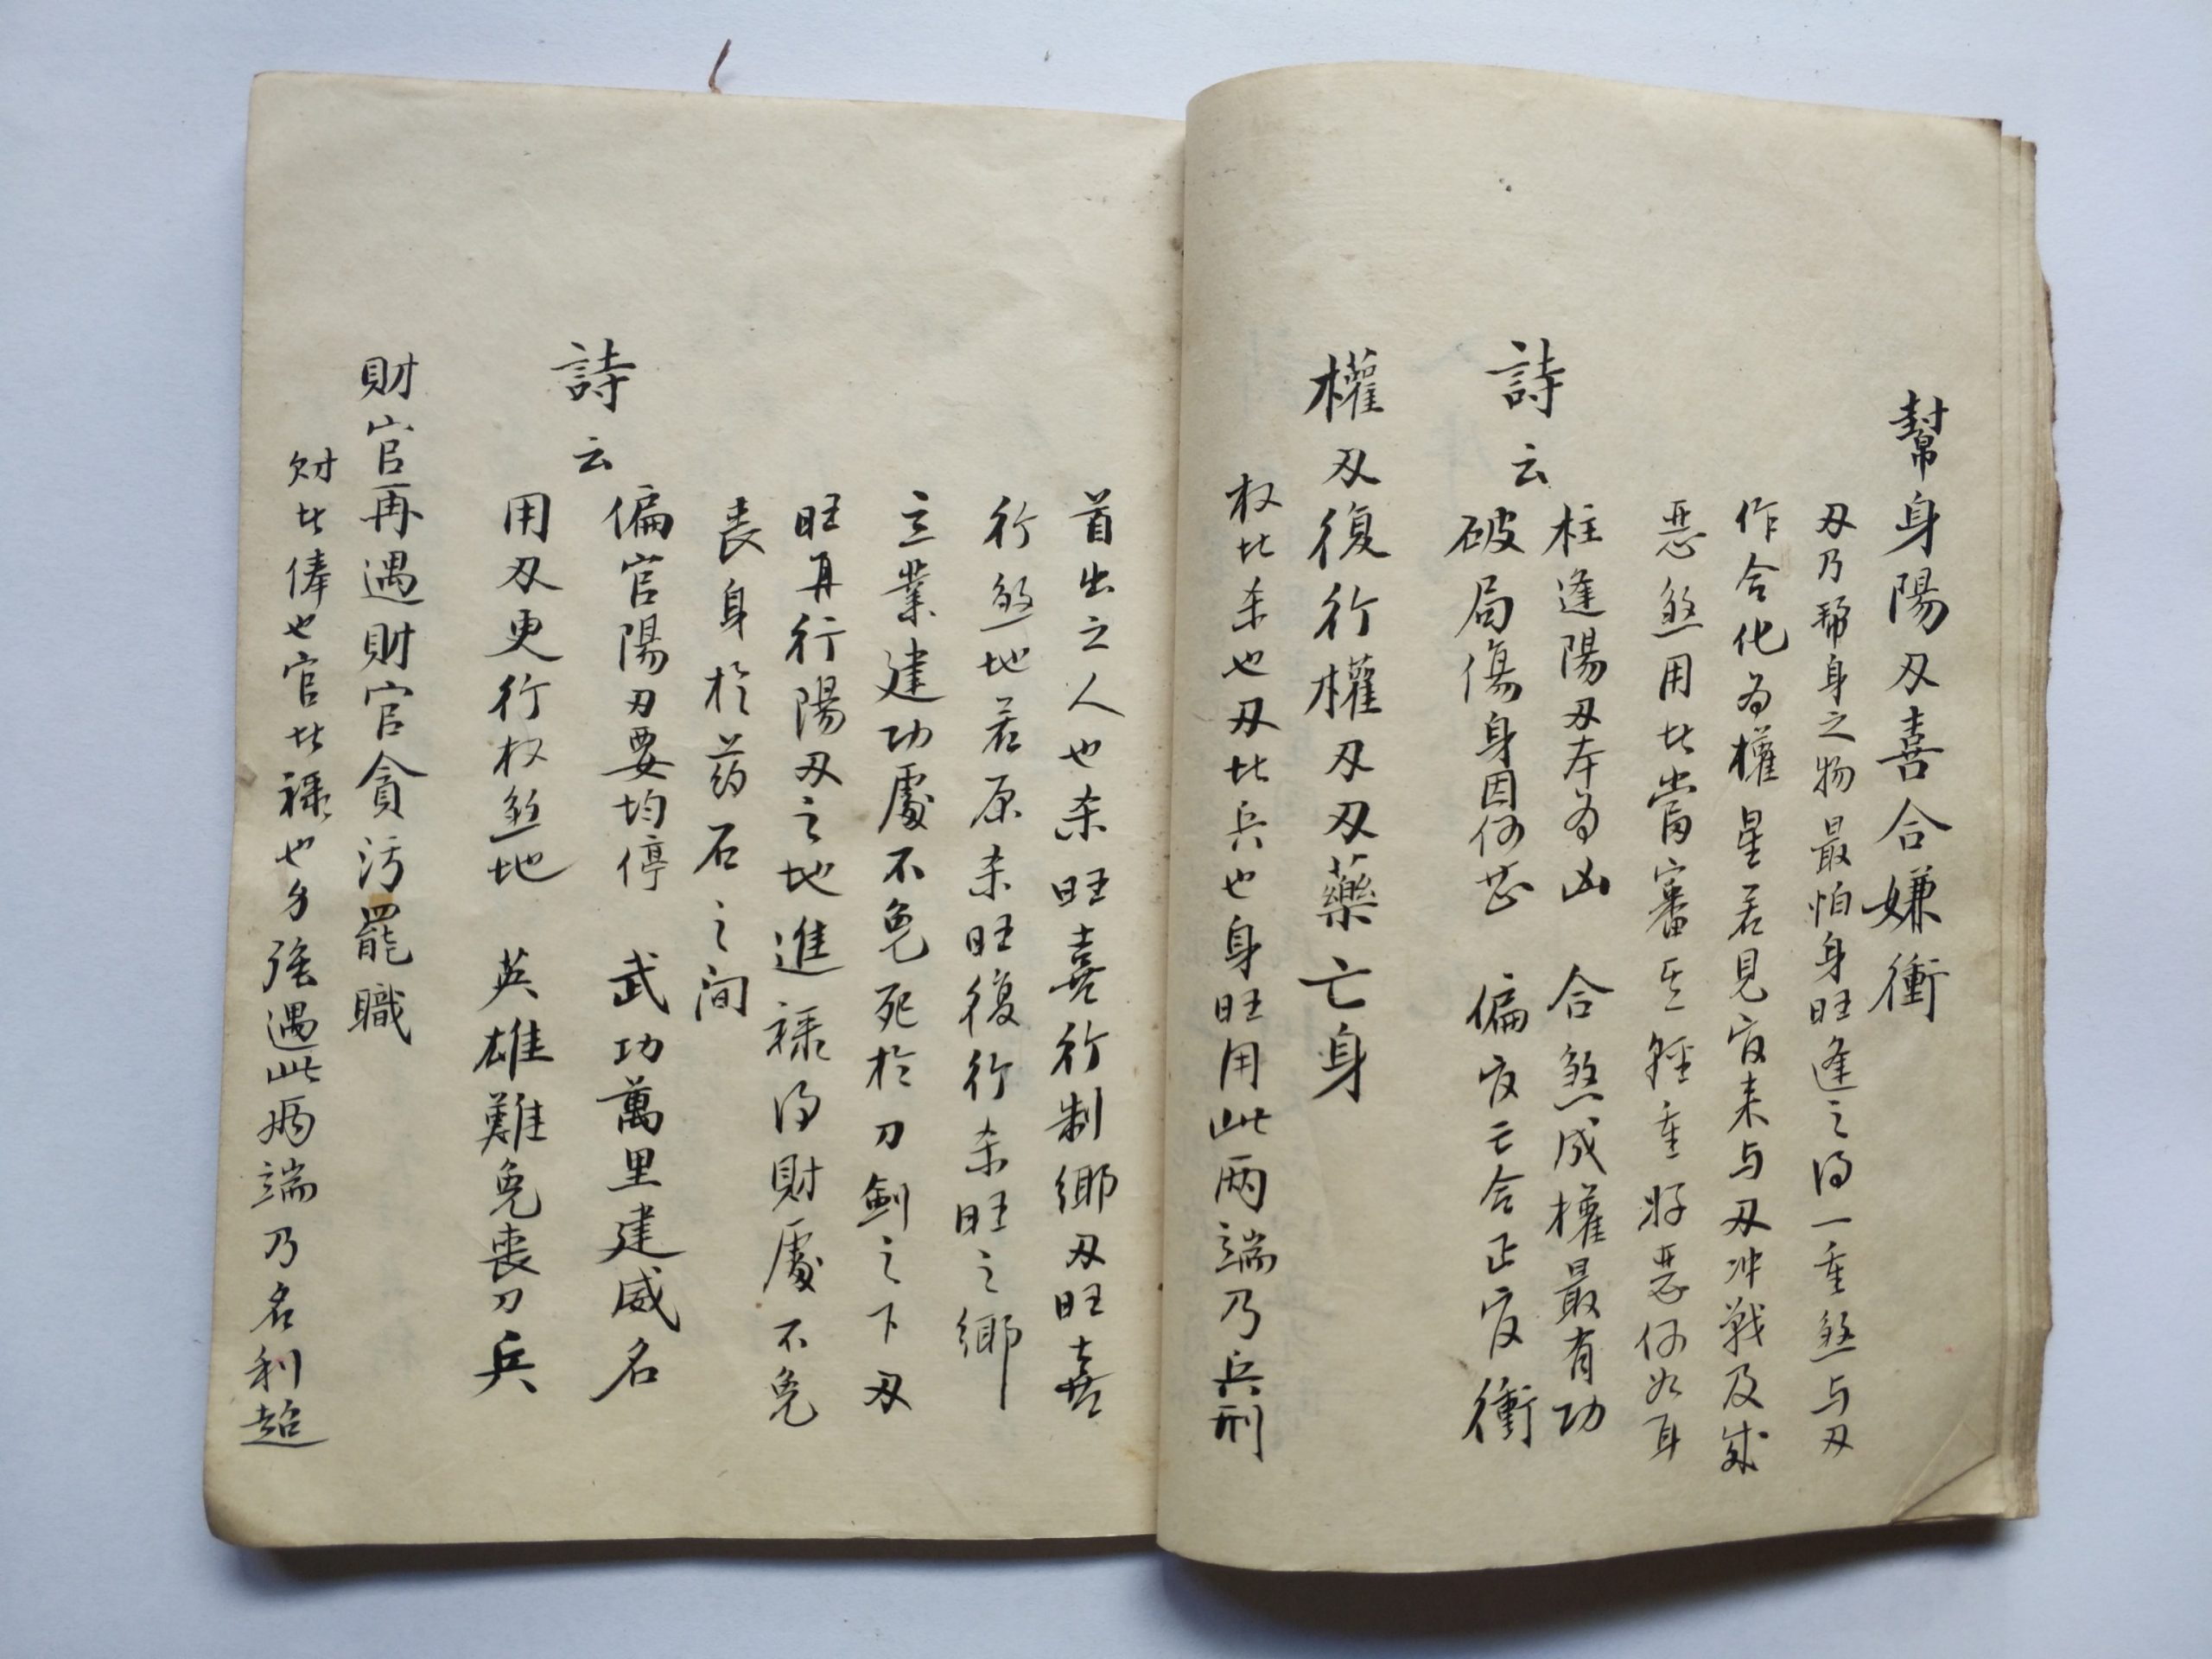 幫身陽刃喜合嫌衝
刃乃幇身之物最怕身旺逢之得一重煞与刃
作合化为權星若見官来与刃冲戰及成
惡煞用此當審其輕重好惡何如耳
詩云
柱逢陽刃本为凶 合煞成權最有功
破局傷身因何甚 偏官亡合正官衝
權刃復行權刃刃藥亡身
权比杀也刃比兵也身旺用此两端乃兵刑
首出之人也杀旺喜行制鄉刃旺喜
行煞地若原杀旺復行杀旺之鄉
立業建功處不免死於刀劍之下刃
旺再行陽刃之地進禄得財處不免
喪身於药石之间
詩云
偏官陽刃要均停 武功萬里建威名
用刃更行权煞地 英雄難免喪刀兵
財官再遇財官貪污罷職
财比俸也官比禄也身強遇此両端乃名利超